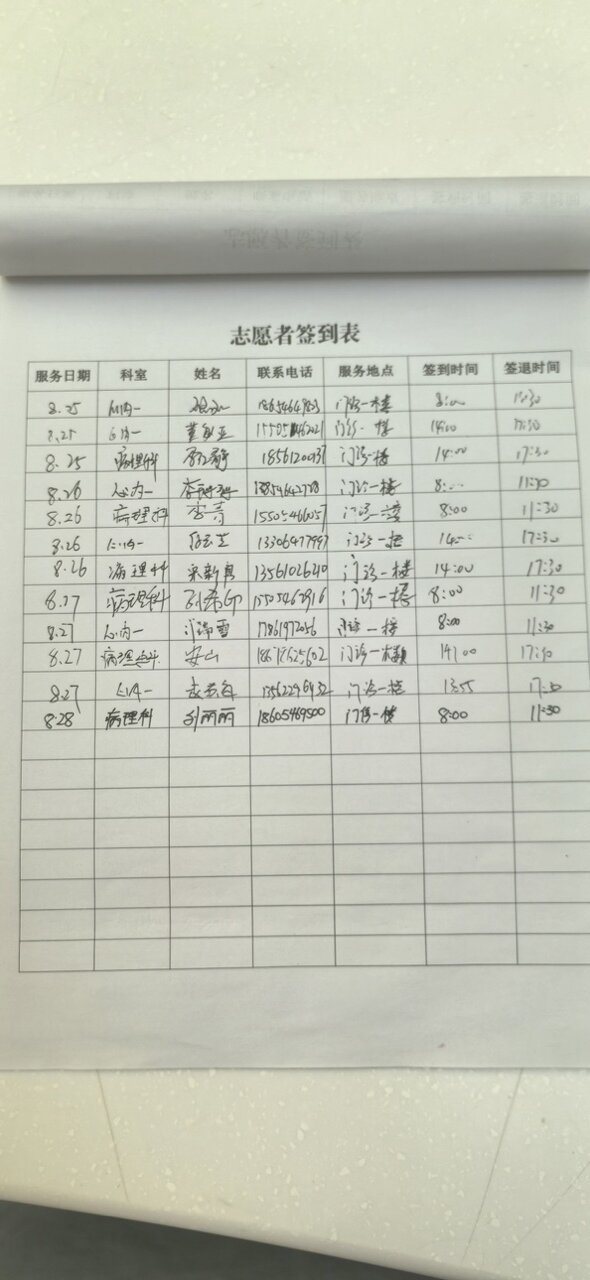 志愿者签到表
服务日期 科室 姓名 联系电话 服务地点 签到时间 签退时间
8.25 心内一 门诊一楼 8:00 11:30
8.25 心内一 门诊一楼 14:00 17:30
8.25 病理科 门诊一楼 14:00 17:30
8.26 心内一 门诊一楼 8:00 11:30
8.26 病理科 李菁 15505466057 门诊一楼 8:00 11:30
8.26 心内一 13306477997 门诊一楼 14:00 17:30
8.26 病理科 13561026210 门诊一楼 14:00 17:30
8.27 病理科 门诊一楼 8:00 11:30
8.27 心内一 17861972056 门诊一楼 8:00 11:30
8.27 病理科 安山 门诊一楼 14:00 17:30
8.27 心内一 13562296932 门诊一楼 13:55 17:30
8.28 病理科 刘丽丽 18605469500 门诊一楼 8:00 11:30